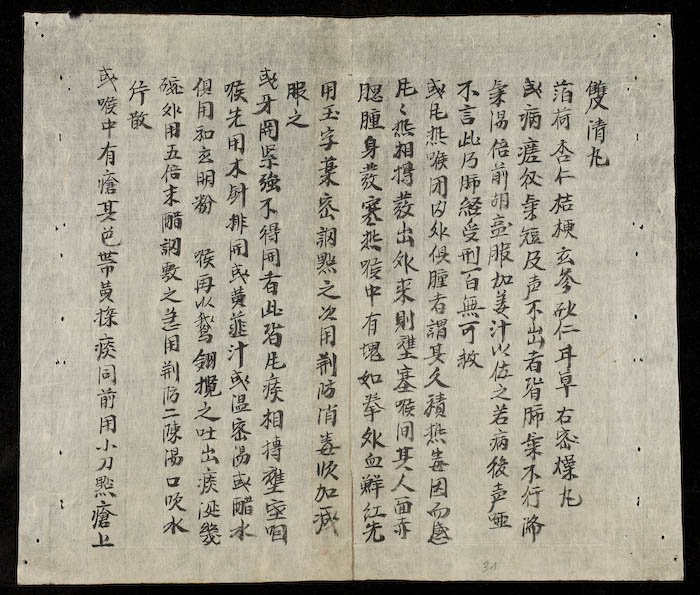 雙清丸
箔荷杏仁桔梗玄参砂仁甘草右密燥丸
或病瘥后氣短及声不出者皆肺氣不行降
氣湯倍前胡 服加姜汁以佐之若病後声啞
不言此乃肺經受刑百無可救
或凡热喉闭内外俱腫者謂其久積热毒因而感
凡〻热相搏發出外来則壅塞喉间其人面赤
腮腫身發寒热喉中有塊如拳外血鮮紅先
用玉字藥密調點之次用荆防消毒飲加减
服之
或牙関緊強不得開者此皆凡痰相摶壅塞咽
喉先用木針排開或黄韮汁或温密湯或醋水
俱用和玄明粉 喉再以鵝翎攪之吐出痰涎幾
碗外用五倍末醋調敷之急用荆防二陳湯口吹水
片散
或喉中有瘡其色帶黄探痰同前用小刀點瘡上